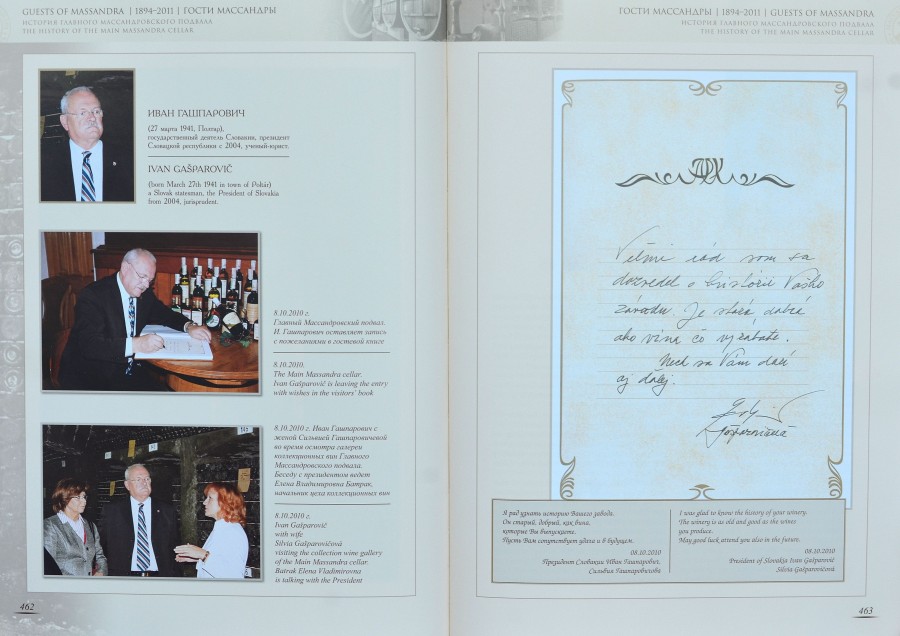 GUESTS OF MASSANDRA | 1894–2011 | ГОСТИ МАССАНДРЫ
ИСТОРИЯ ГЛАВНОГО МАССАНДРОВСКОГО ПОДВАЛА
THE HISTORY OF THE MAIN MASSANDRA CELLAR
ИВАН ГАШПАРОВИЧ
(27 марта 1941, Полтар),
государственный деятель Словакии, президент
Словацкой республики с 2004, ученый-юрист.
IVAN GAŠPAROVIČ
(born March 27th 1941 in town of Poltár)
a Slovak statesman, the President of Slovakia
from 2004, jurisprudent.
8.10.2010 г.
Главный Массандровский подвал.
И. Гашпарович оставляет запись
с пожеланиями в гостевой книге
8.10.2010.
The Main Massandra cellar.
Ivan Gašparovič is leaving the entry
with wishes in the visitors' book
8.10.2010. Иван Гашпарович с
женой Сильвией Гашпаровичевой
во время осмотра галереи
коллекционных вин Главного
Массандровского подвала.
Беседу с президентом ведет
Елена Владимировна Батрак,
начальник цеха коллекционных вин
8.10.2010 г.
Ivan Gašparovič
with wife
Silvia Gašparovičová
visiting the collection wine gallery
of the Main Massandra cellar.
Batrak Elena Vladimirovna
is talking with the President
462
ГОСТИ МАССАНДРЫ | 1894–2011 | GUESTS OF MASSANDRA
ИСТОРИЯ ГЛАВНОГО МАССАНДРОВСКОГО ПОДВАЛА
THE HISTORY OF THE MAIN MASSANDRA CELLAR
Veľmi rád som sa
dozvedel o histórii Vášho
závodu. Je stará, dobré
ako vína čo vyrábate.
Nech sa Vám darí
aj ďalej.
Gašparovičová
Я рад узнать историю Вашего завода.
Он старый, добрый, как вина,
которые Вы выпускаете.
Пусть Вам сопутствует удача и в будущем.
08.10.2010
Президент Словакии Иван Гашпарович,
Сильвия Гашпаровичова
I was glad to know the history of your winery.
The winery is as old and good as the wines
you produce.
May good luck attend you also in the future.
08.10.2010
President of Slovakia Ivan Gašparovič
Silvia Gašparovičová
463